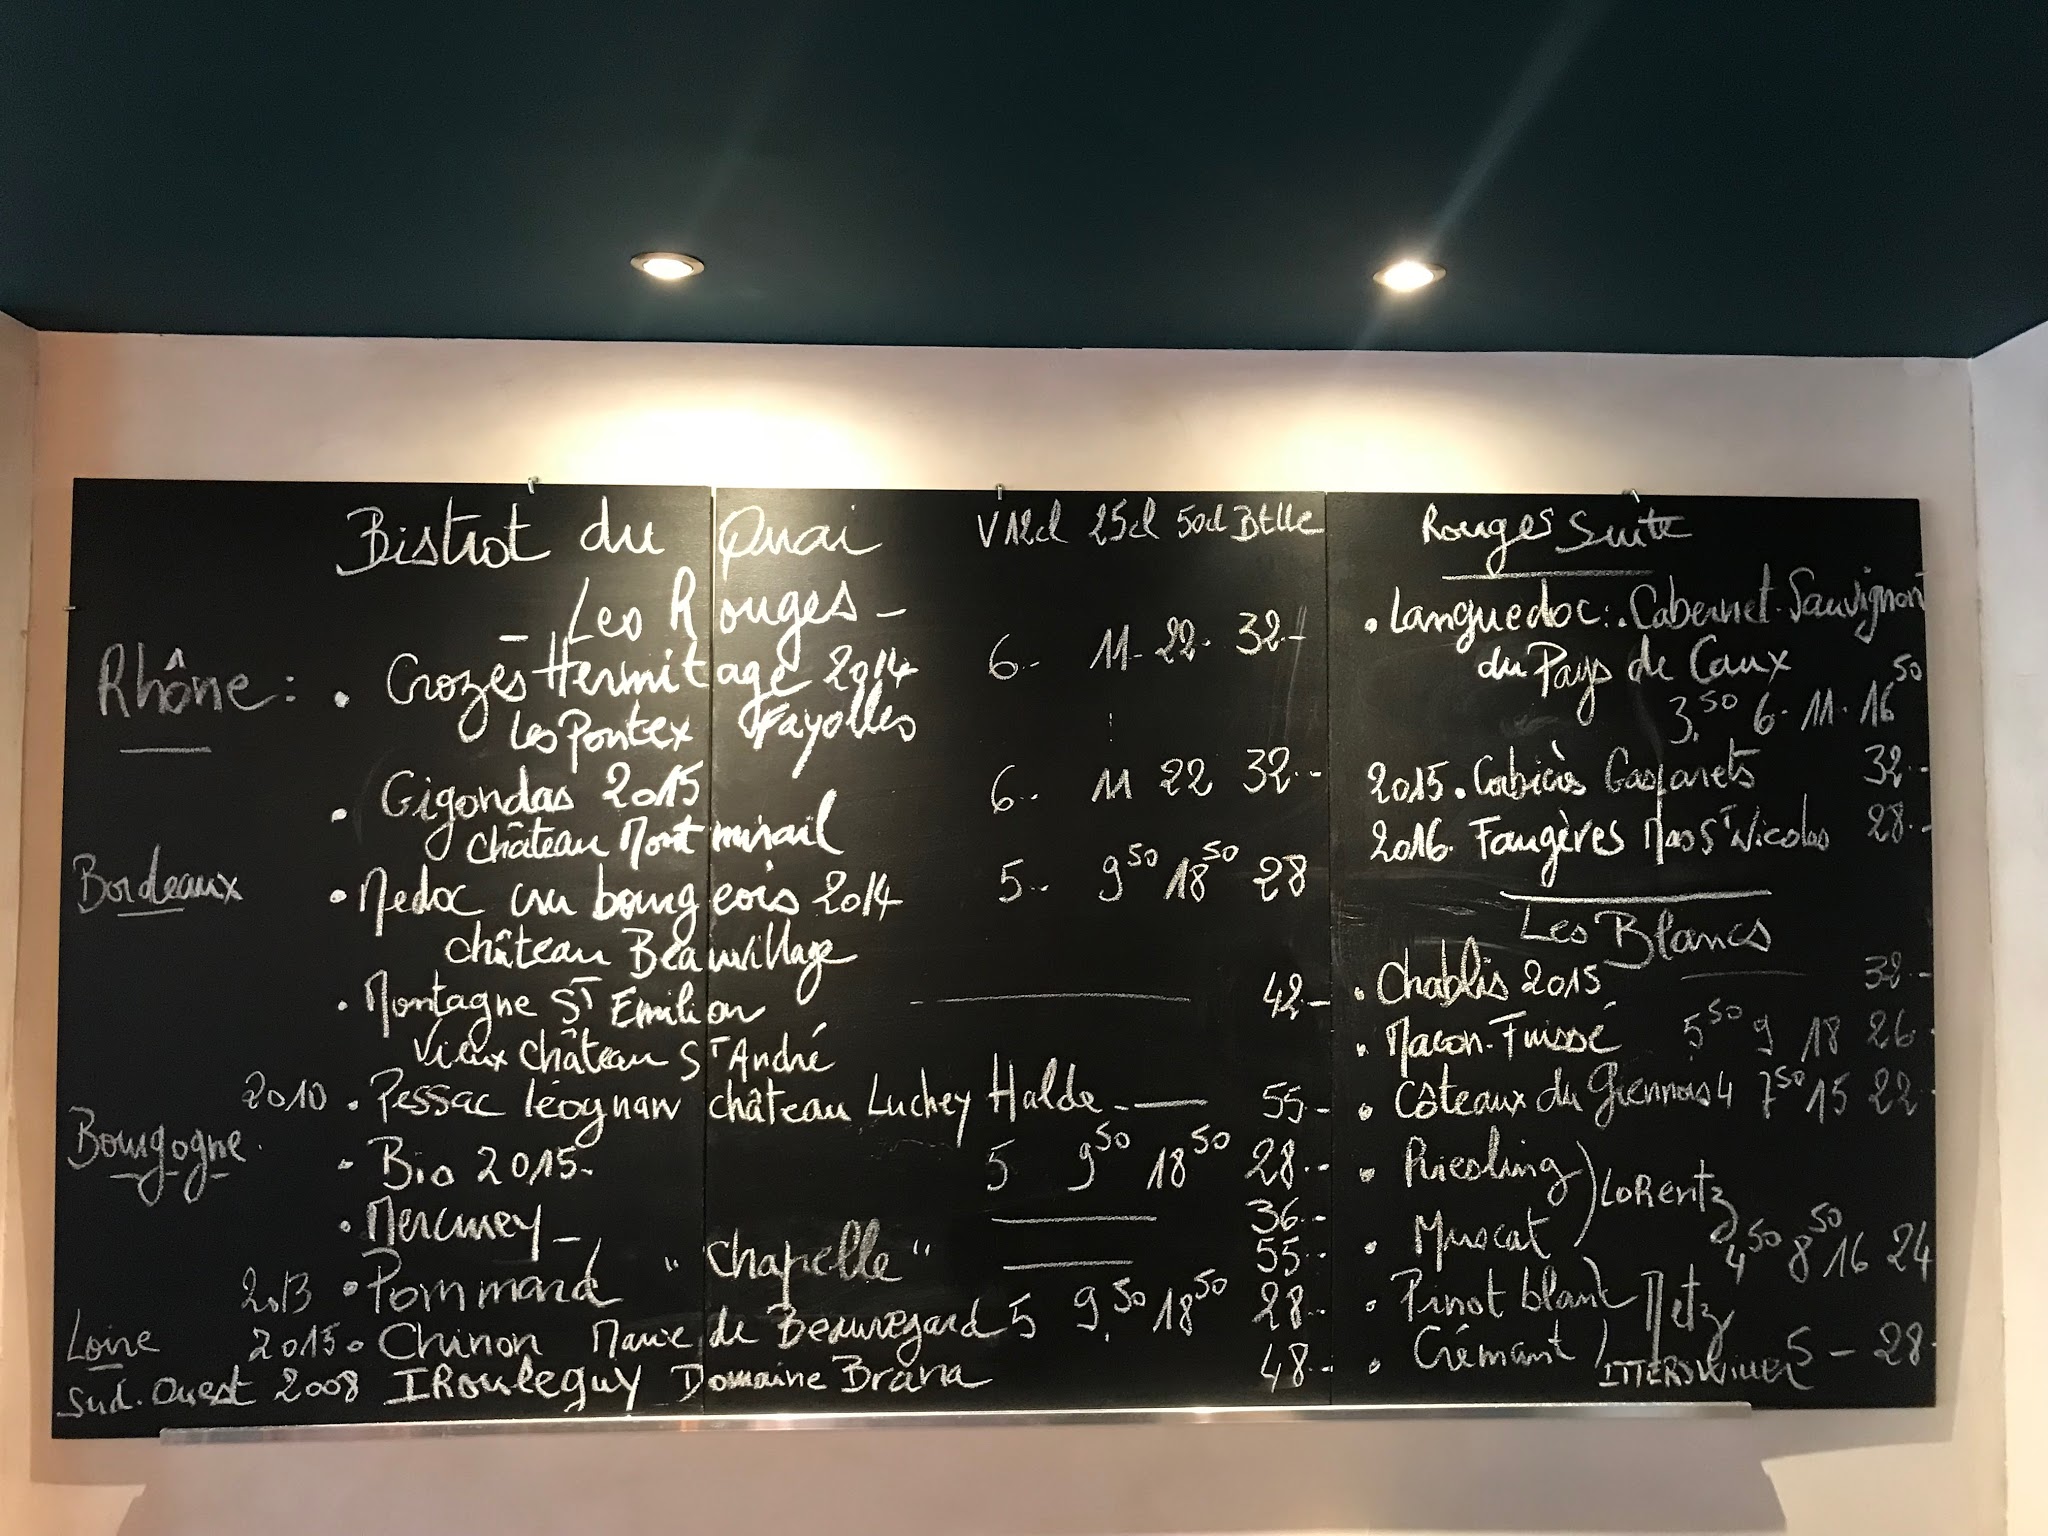 Bistrot du Quai V12cl 25cl 50cl Btlle
_ Les Rouges _
Rhône : . Crozes Hermitage 2014 6.- 11- 22- 32.-
les Pontex Fayolles
. Gigondas 2015 6.- 11 22 32.-
château Montmirail
Bordeaux . Medoc cru bourgeois 2014 5.- 9 50 18 50 28
château Beauvillage
. Montagne ST Emilion 42.-
Vieux château ST André
2010 . Pessac léognan château Luchey Halde 55.-
Bourgogne . Bio 2015- 5 9 50 18 50 28.-
. Mercurey _ 36.-
2013 . Pommard "Chapelle" 55.-
Loire 2015. Chinon Marie de Beauregard 5 9.50 18 50 28.-
Sud.Ouest 2008 IRouleguy Domaine Brana 48.-
Rouges Suite
. Languedoc : . Cabernet-Sauvignon
du Pays de Caux
3.50 6- 11- 16 50
2015 . Gasparets 32.-
2016. Faugères Mas ST Nicolas 28.-
Les Blancs
. Chablis 2015 38.-
. Macon-Fuissé 5 50 9 18 26.
. Côteaux du Giennois 4 7 50 15 22
. Riesling ) LoRentz
. Muscat 4 50 8 50 16 24
. Pinot blanc Metz
. Crémant ITTERSWILLER 5 - 28-